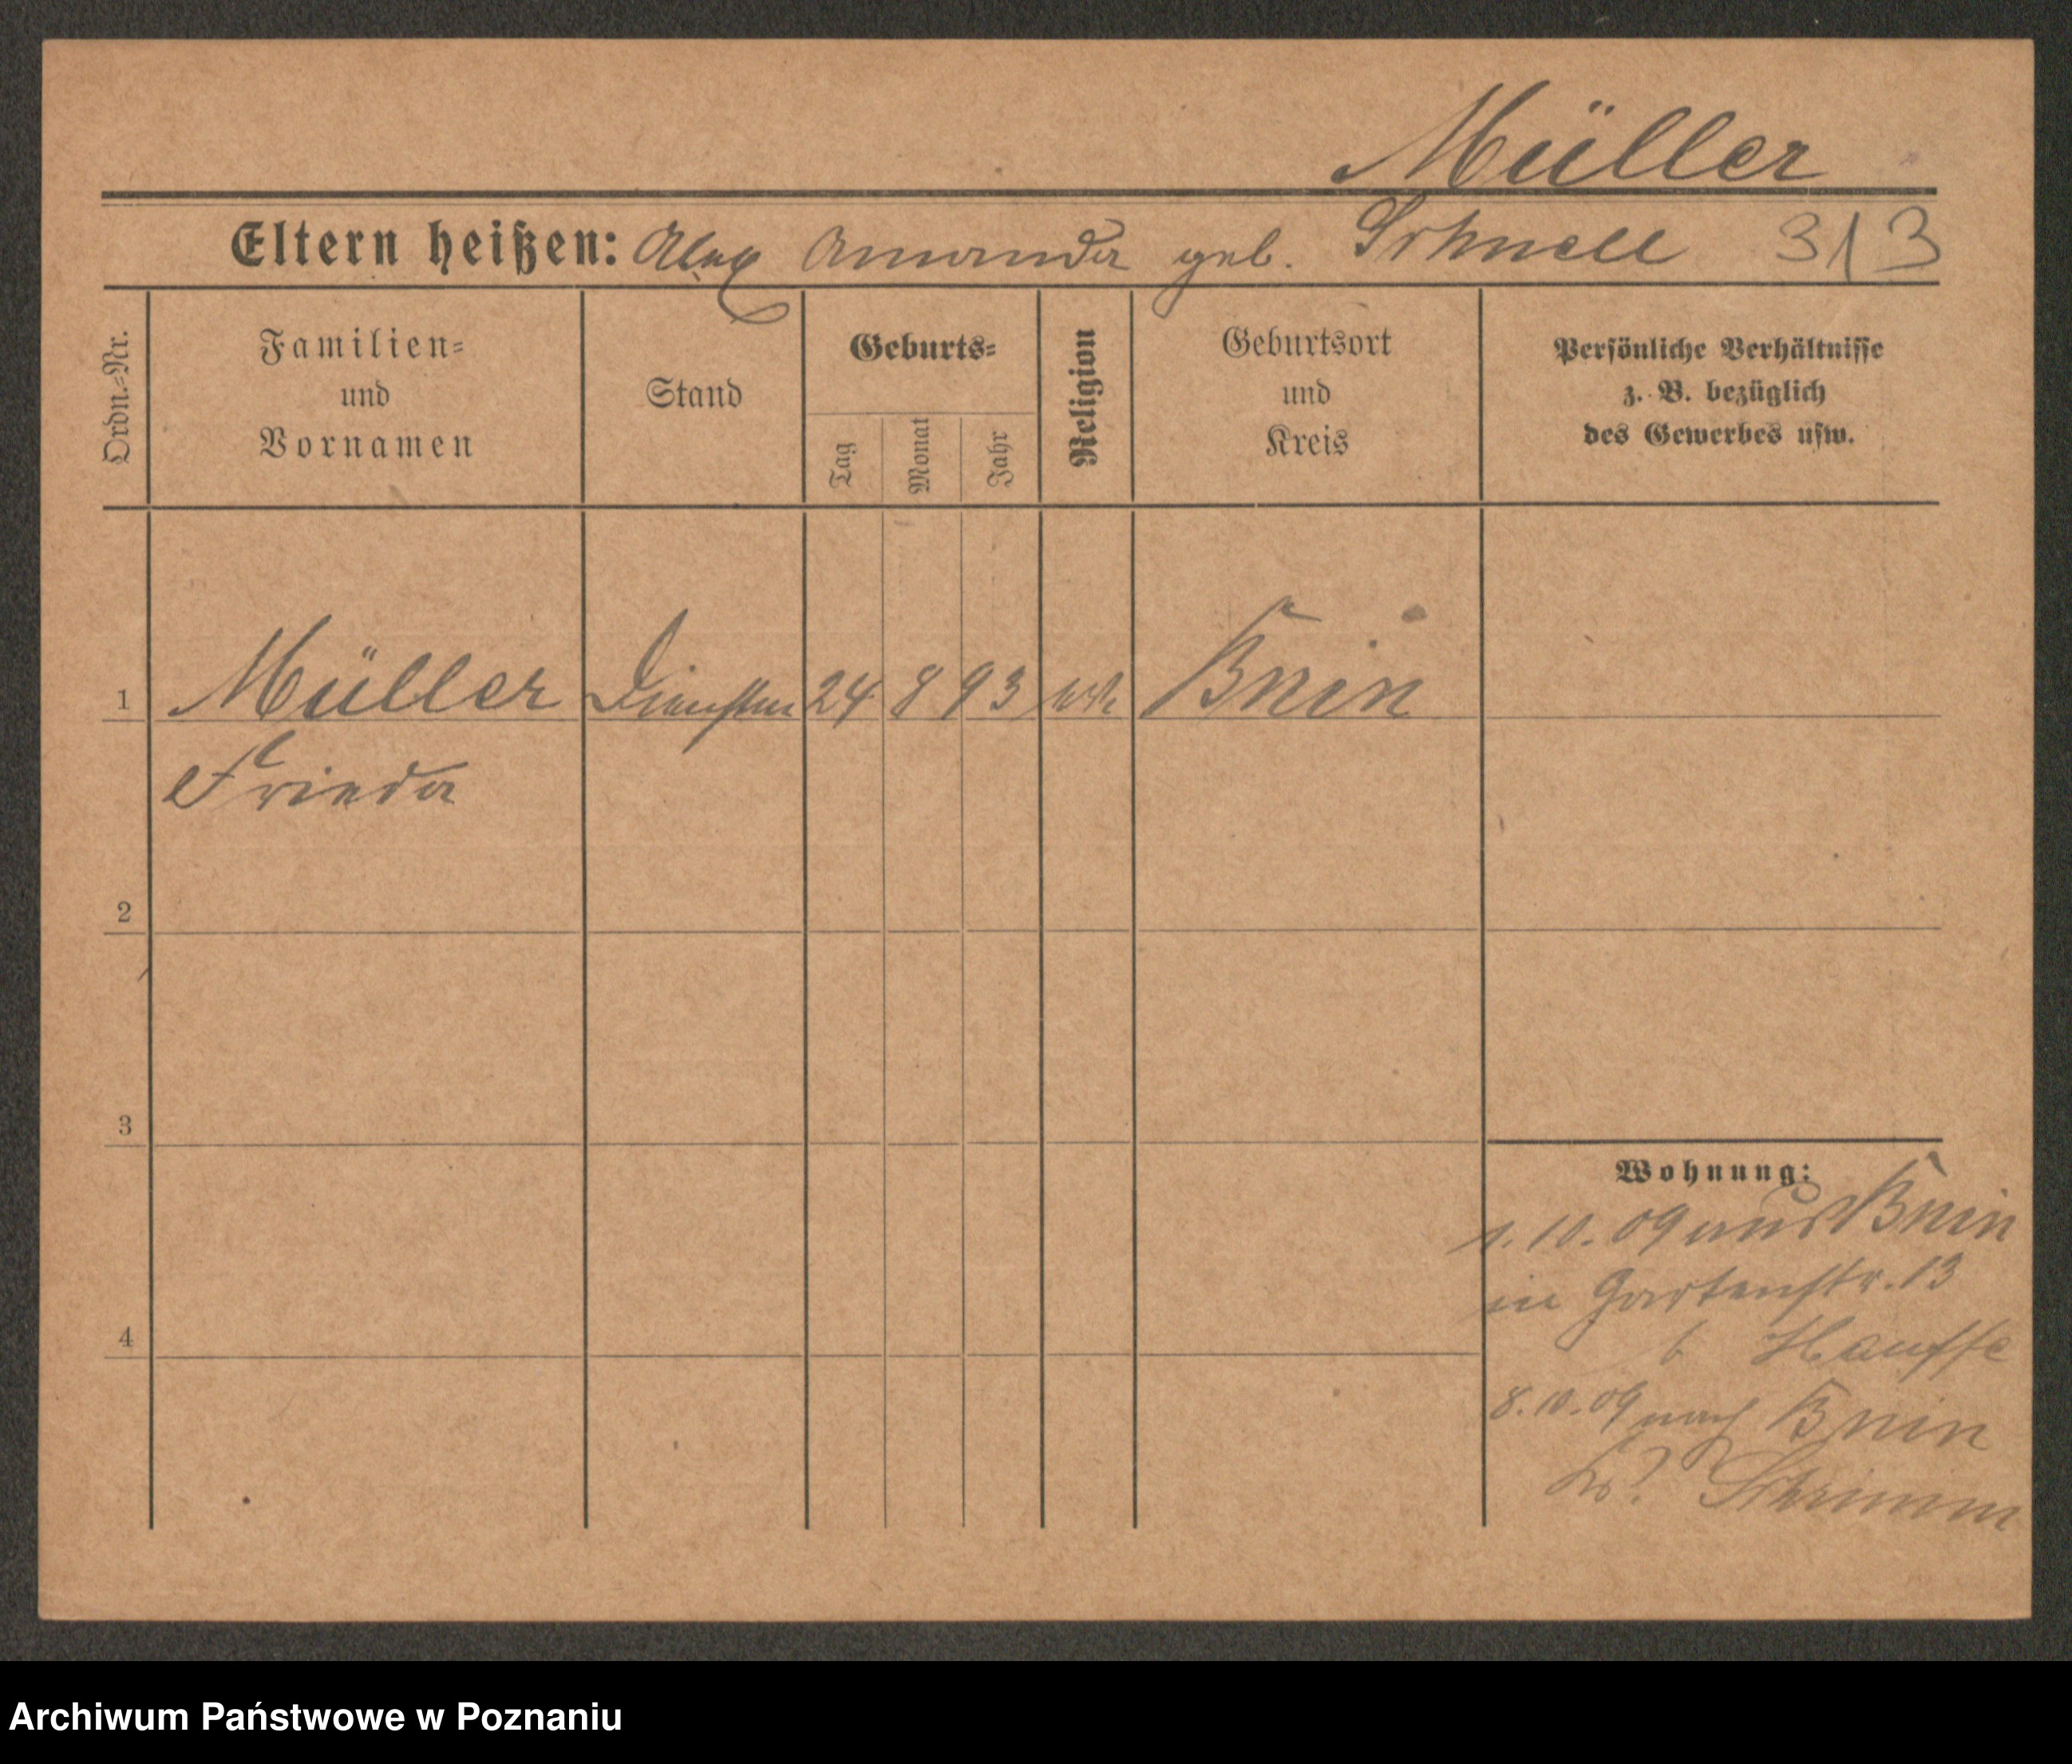 Müller
Eltern heißen: Alex Amanda geb. Schnell 313
Ordn.=Nr.
Familien=
und
Vornamen
Stand
Geburts=
Tag
Monat
Jahr
Religion
Geburtsort
und
Kreis
Persönliche Verhältnisse
z. B. bezüglich
des Gewerbes usw.
1 Müller 24 8 93 Bnin
Frieda
2
3
4
Wohnung:
1.10.09 aus Bnin
in Gartenstr. 13
b Hauffe
8.10.09 nach Bnin
Schrimm
Archiwum Państwowe w Poznaniu